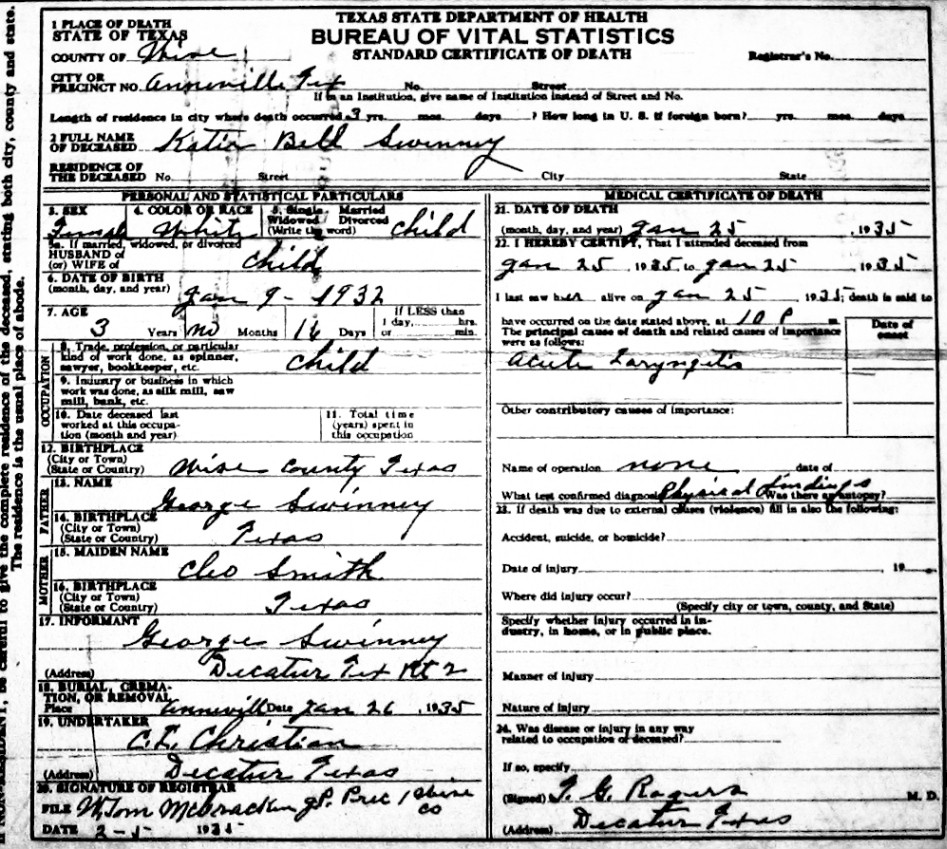 TEXAS STATE DEPARTMENT OF HEALTH
BUREAU OF VITAL STATISTICS
STANDARD CERTIFICATE OF DEATH
1 PLACE OF DEATH
STATE OF TEXAS
COUNTY OF Wise
Registrar's No.
CITY OR PRECINCT NO. Anneville Tex No. Street
If in an Institution, give name of Institution instead of Street and No.
Length of residence in city where death occurred 3 yrs. mos. days ? How long in U. S. if foreign born? yrs. mos. days
2 FULL NAME OF DECEASED Katie Bell Swinney
RESIDENCE OF THE DECEASED No. Street City State
PERSONAL AND STATISTICAL PARTICULARS
3. SEX Female
4. COLOR OR RACE White
5. Single Married Widowed Divorced (Write the word) child
5a. If married, widowed, or divorced
HUSBAND of (or) WIFE of child
6. DATE OF BIRTH
(month, day, and year) Jan 9 - 1932
7. AGE 3 Years no Months 16 Days
If LESS than 1 day, hrs. or min.
OCCUPATION
8. Trade, profession, or particular kind of work done, as spinner, sawyer, bookkeeper, etc. child
9. Industry or business in which work was done, as silk mill, saw mill, bank, etc.
10. Date deceased last worked at this occupation (month and year)
11. Total time (years) spent in this occupation
12. BIRTHPLACE
(City or Town)
(State or Country) Wise County Texas
FATHER
13. NAME George Swinney
14. BIRTHPLACE
(City or Town)
(State or Country) Texas
MOTHER
15. MAIDEN NAME Cleo Smith
16. BIRTHPLACE
(City or Town)
(State or Country) Texas
17. INFORMANT George Swinney
(Address) Decatur Tex Rt 2
18. BURIAL, CREMATION, OR REMOVAL
Place Annevill Date Jan 26, 1935
19. UNDERTAKER C.L. Christian
(Address) Decatur Texas
20. SIGNATURE OF REGISTRAR
FILE W. Tom McCracken J.P. Prec 1 Wise Co
DATE 2-5 1935
MEDICAL CERTIFICATE OF DEATH
21. DATE OF DEATH
(month, day, and year) Jan 25, 1935
22. I HEREBY CERTIFY, That I attended deceased from
Jan 25, 1935 to Jan 25, 1935
I last saw her alive on Jan 25 1935; death is said to
have occurred on the date stated above, at 10 P m.
The principal cause of death and related causes of importance were as follows:
Date of onset
Acute Laryngitis
Other contributory causes of importance:
Name of operation none date of
What test confirmed diagnosis Physical findings Was there an autopsy?
23. If death was due to external causes (violence) fill in also the following:
Accident, suicide, or homicide?
Date of injury , 19
Where did injury occur?
(Specify city or town, county, and State)
Specify whether injury occurred in industry, in home, or in public place.
Manner of injury
Nature of injury
24. Was disease or injury in any way related to occupation of deceased?
If so, specify
(Signed) T. G. Rogers M. D.
(Address) Decatur Texas
be careful to give the complete residence of the deceased, stating both city, county and state.
The residence is the usual place of abode.